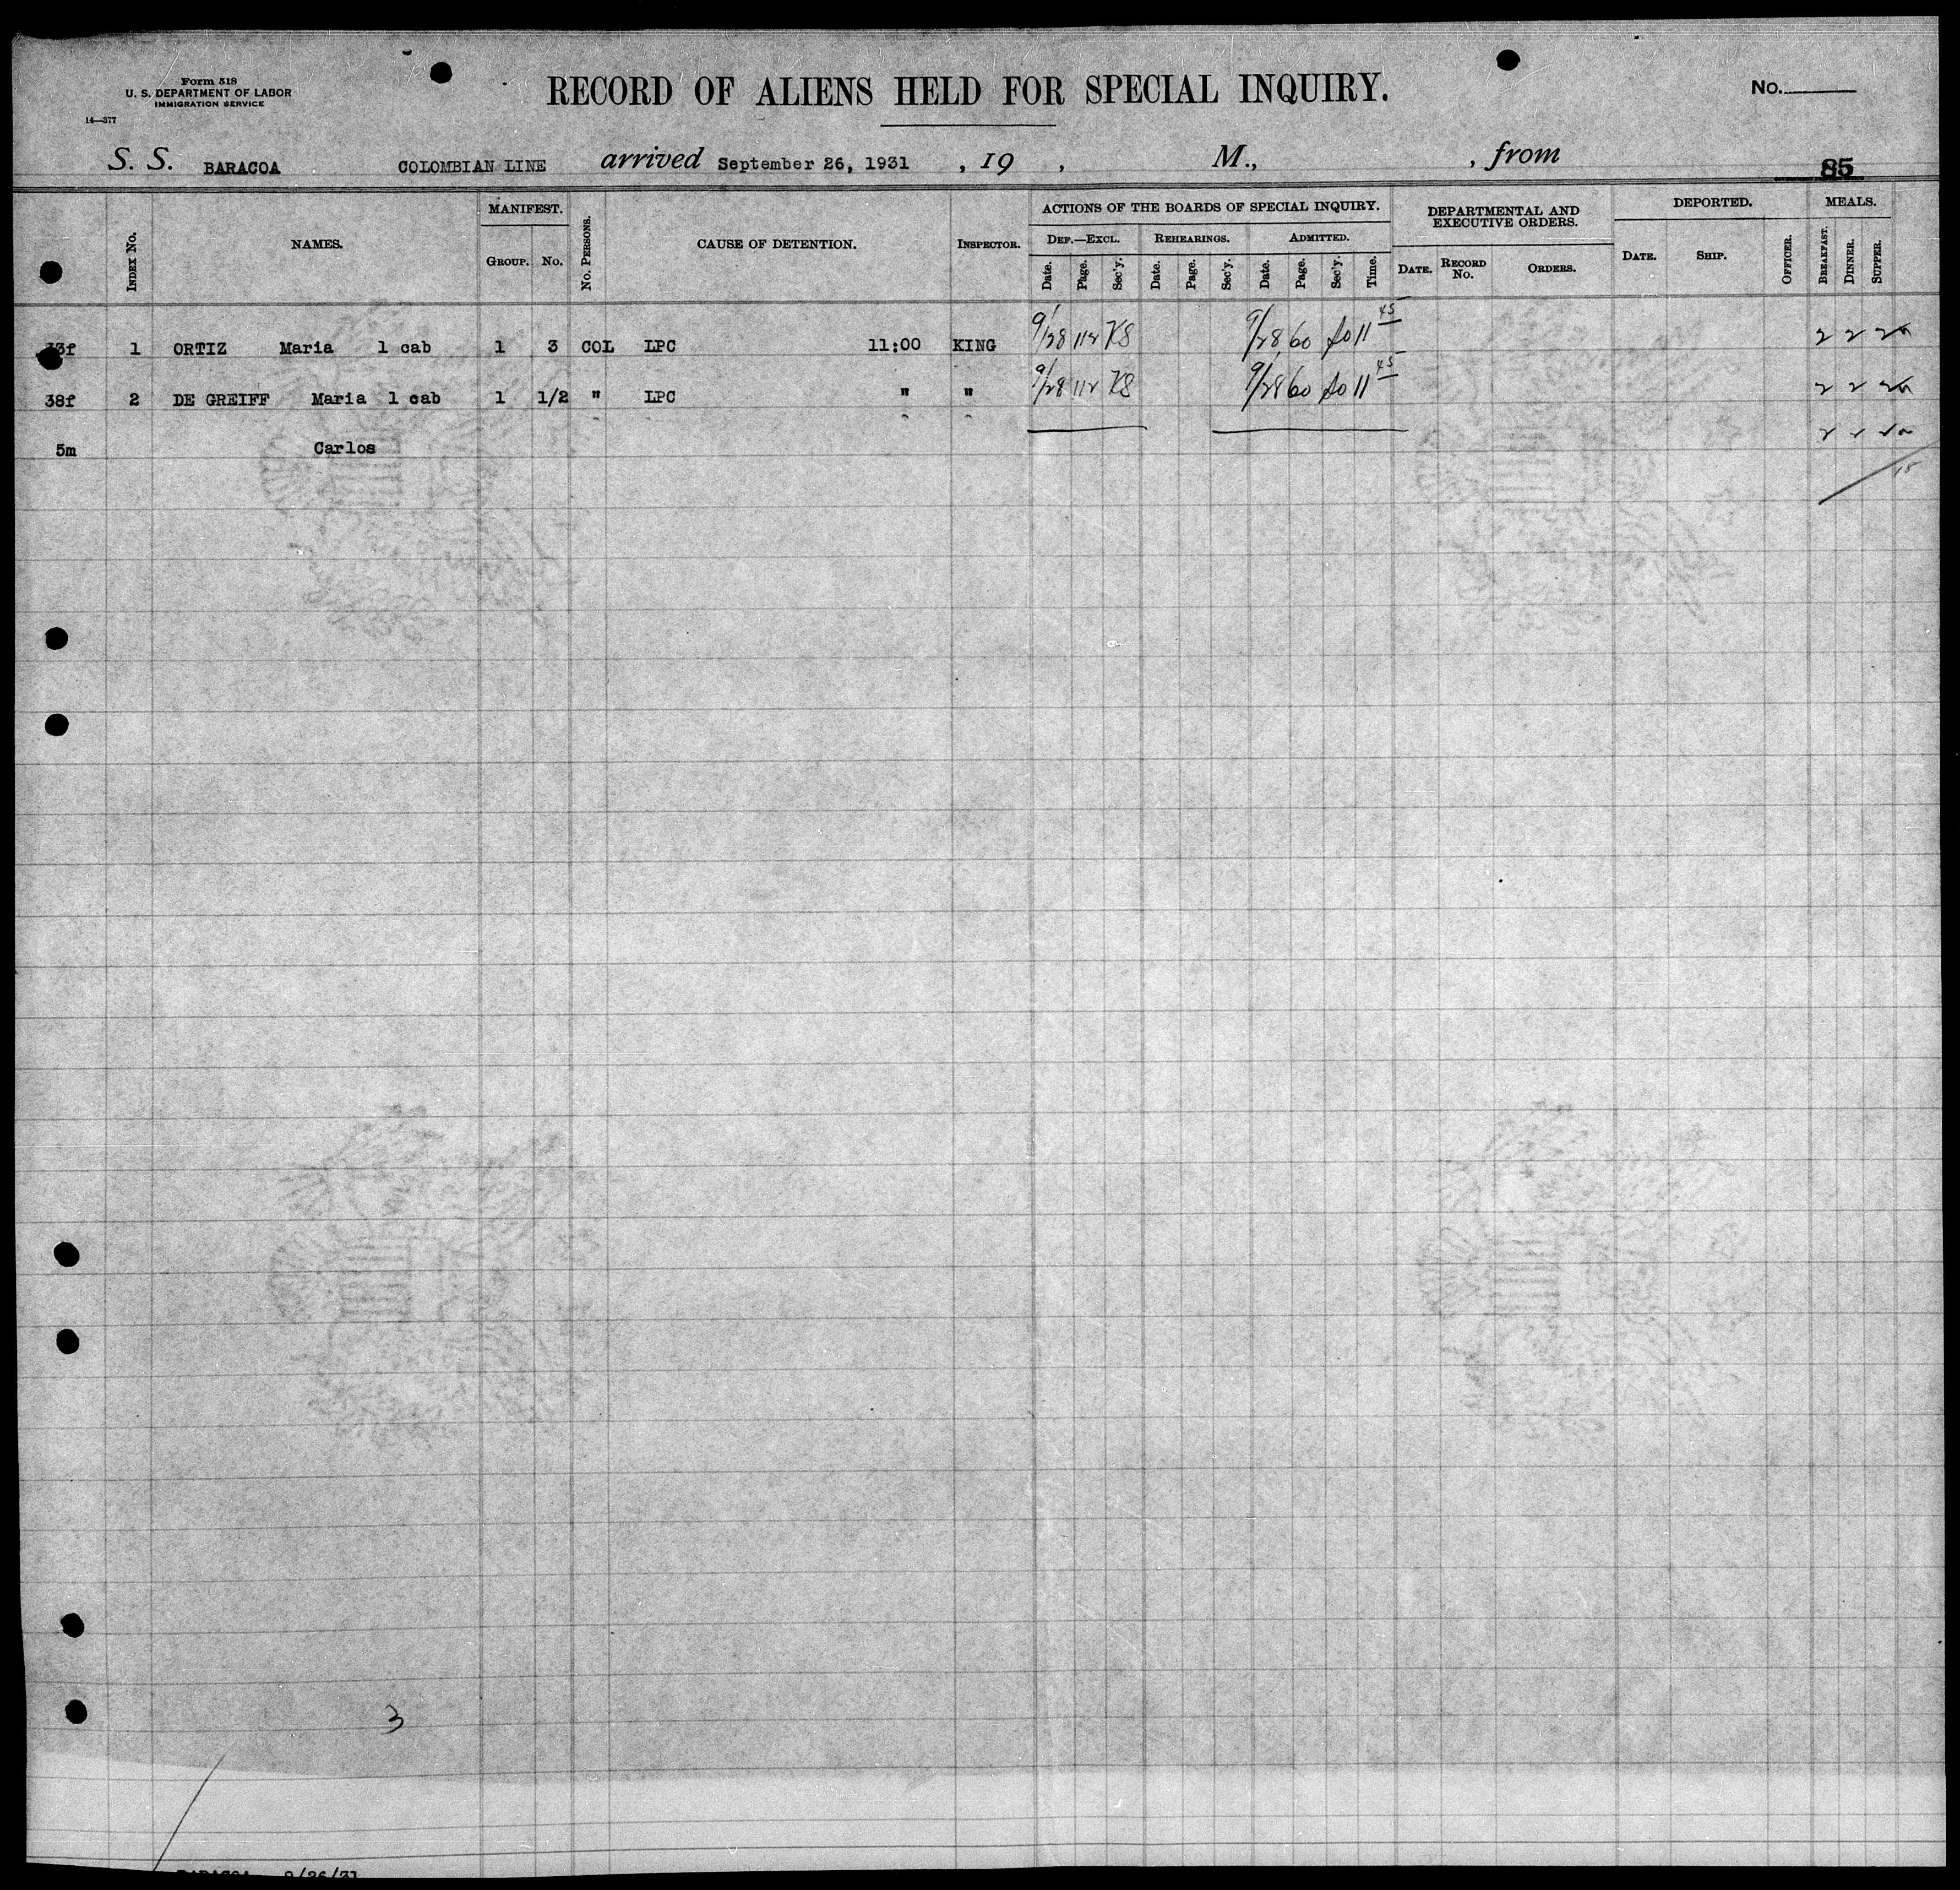 Form 518
U. S. DEPARTMENT OF LABOR
IMMIGRATION SERVICE
14—377
RECORD OF ALIENS HELD FOR SPECIAL INQUIRY.
No.
S. S. BARACOA COLOMBIAN LINE arrived September 26, 1931 , 19 , M., , from
85
INDEX No. NAMES. MANIFEST. GROUP. No. No. PERSONS. CAUSE OF DETENTION. INSPECTOR. ACTIONS OF THE BOARDS OF SPECIAL INQUIRY. DEF.—EXCL. Date. Page. Sec'y. REHEARINGS. Date. Page. Sec'y. ADMITTED. Date. Page. Sec'y. Time. DEPARTMENTAL AND EXECUTIVE ORDERS. DATE. RECORD No. ORDERS. DEPORTED. DATE. SHIP. OFFICER. MEALS. BREAKFAST. DINNER. SUPPER.
1 ORTIZ Maria 1 cab 1 3 COL LPC 11:00 KING 9/28 112 KS 9/28 60 11 45 2 2 2
38f 2 DE GREIFF Maria 1 cab 1 1/2 " LPC " " 9/28 112 KS 9/28 60 11 45 2 2 2
5m Carlos 2
18
3
BARACOA 9/26/31